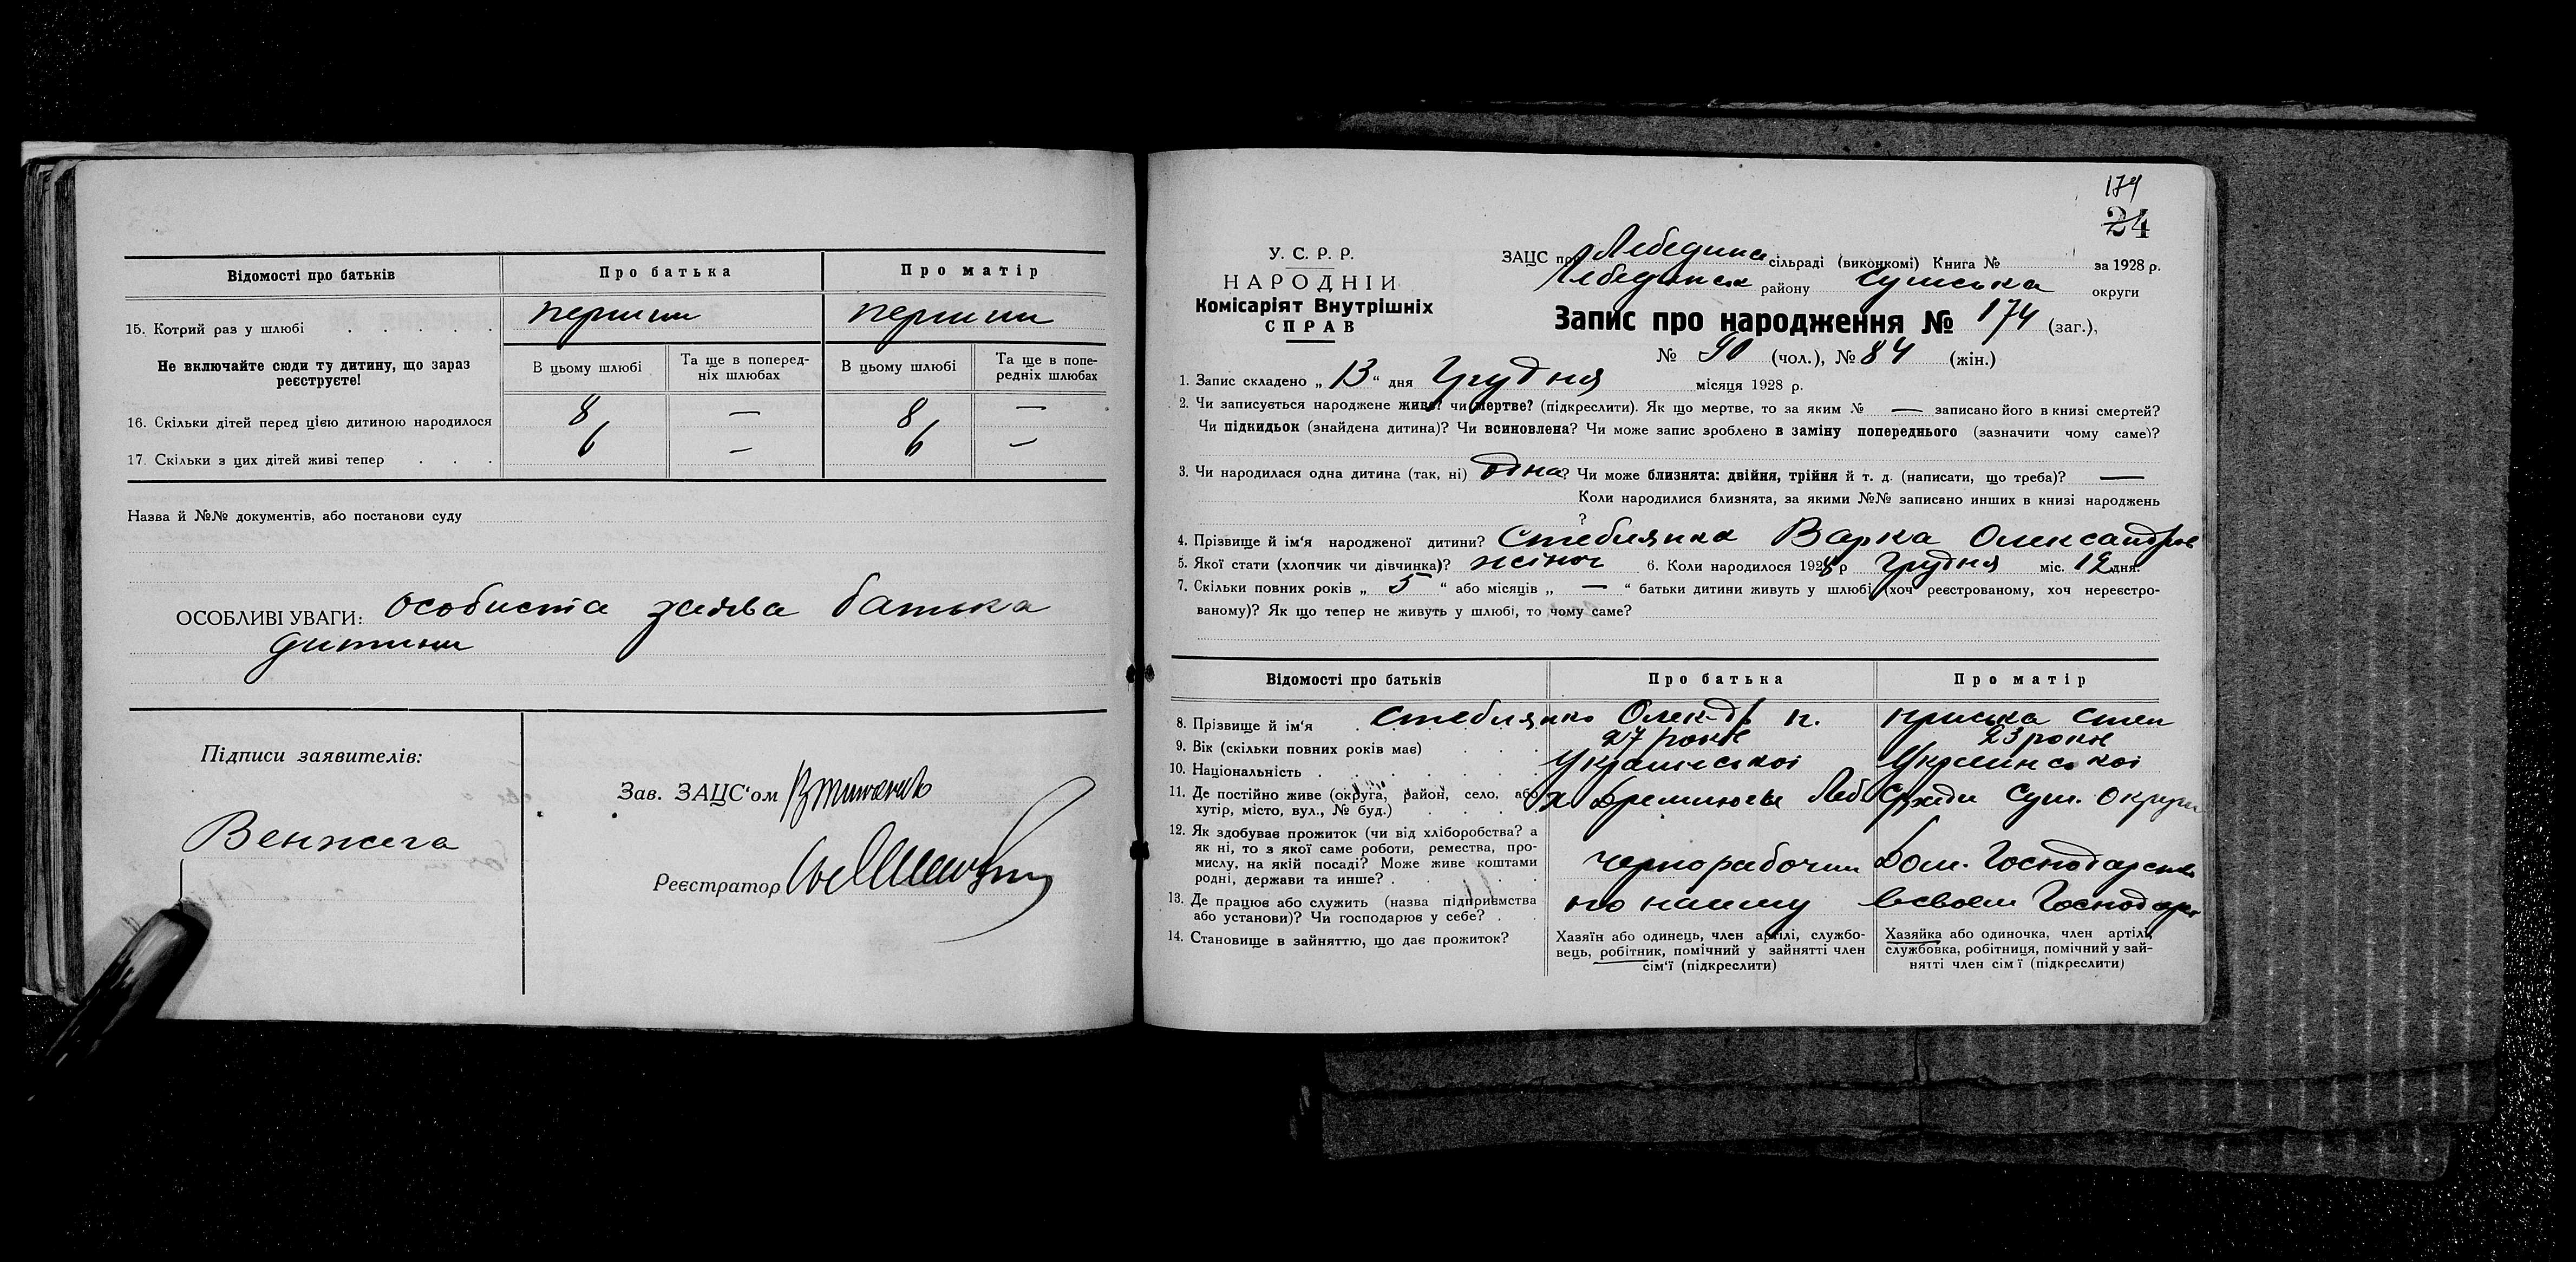 Відомості про батьків
Про батька
Про матір
15. Котрий раз у шлюбі . . . . .
перший
перший
Не включайте сюди ту дитину, що зараз
реєструєте!
В цьому шлюбі
Та ще в поперед-
ніх шлюбах
В цьому шлюбі
Та ще в попе-
редніх шлюбах
16. Скільки дітей перед цією дитиною народилося
8 — 8 —
17. Скільки з цих дітей живі тепер . . .
6 — 6 —
Назва й №№ документів, або постанови суду
ОСОБЛИВІ УВАГИ: Особиста заява батька
дитини
Підписи заявителів:
Венжега
Зав. ЗАЦС'ом
Реєстратор
174
24
У. С. Р. Р.
НАРОДНІЙ
Комісаріят Внутрішніх
СПРАВ
ЗАЦС при Лебединс сільраді (виконкомі) Книга № за 1928 р.
Лебединск району Сумська округи
Запис про народження № 174 (заг.),
№ 90 (чол.), № 84 (жін.)
1. Запис складено „ 13 “ дня Грудня місяця 1928 р.
2. Чи записується народжене живе? чи мертве? (підкреслити). Як що мертве, то за яким № — записано його в книзі смертей?
Чи підкидьок (знайдена дитина)? Чи всиновлена? Чи може запис зроблено в заміну попереднього (зазначити чому саме)?
3. Чи народилася одна дитина (так, ні) одна? Чи може близнята: двійня, трійня й т. д. (написати, що треба)? —
Коли народилися близнята, за якими №№ записано инших в книзі народжень
?
4. Прізвище й ім'я народженої дитини? Стеблянка Варка Олександров
5. Якої стати (хлопчик чи дівчинка)? жіноч 6. Коли народилося 1928 р Грудня міс. 12 дня.
7. Скільки повних років „ 5 “ або місяців „ — “ батьки дитини живуть у шлюбі (хоч реєстрованому, хоч нереєстро-
ваному)? Як що тепер не живуть у шлюбі, то чому саме?
Відомості про батьків
Про батька
Про матір
8. Прізвище й ім'я . Стеблянко Олек-др П.Приська Степ
9. Вік (скільки повних років має) . . . 27 років 23 років
10. Національність . . . . . . . Української Української
11. Де постійно живе (округа, район, село, або
хутір, місто, вул., № буд.) . . . .
Сум. Округи
12. Як здобуває прожиток (чи від хліборобства? а
як ні, то з якої саме роботи, ремества, про-
мислу, на якій посаді? Може живе коштами
родні, держави та инше? . . .
чернорабочий
Дом. Господарство
13. Де працює або служить (назва підприємства
або установи)? Чи господарює у себе? . .
по найму
Господар
14. Становище в зайняттю, що дає прожиток?
Хазяїн або одинець, член артілі, службо-
вець, робітник, помічний у зайнятті член
сім'ї (підкреслити)
Хазяйка або одиночка, член артілі,
службовка, робітниця, помічний у зай-
нятті член сім'ї (підкреслити)